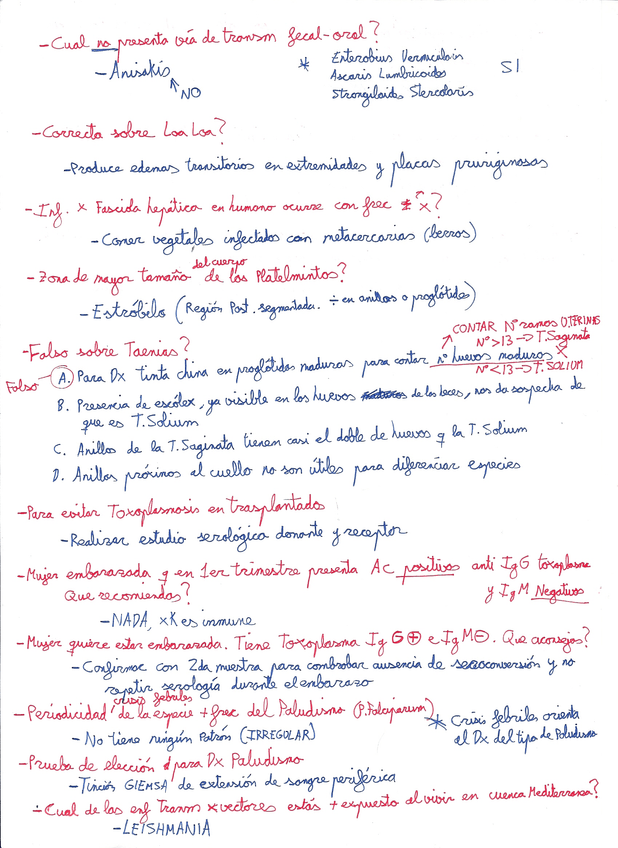 - Cual no presenta vía de transm fecal-oral?
- Anisakis
NO
* Enterobius Vermicularis
Ascaris Lumbricoides
Strongiloides Stercolaris
SI
- Correcta sobre Loa Loa?
- Produce edemas transitorios en extremidades y placas pruriginosas
- Inf. x Fasciola hepática en humano ocurre con frec x?
- Comer vegetales infectados con metacercarias (berros)
- Zona de mayor tamaño del cuerpo de los Platelmintos?
- Estróbilo (Región Post. segmentada. ÷ en anillos o proglótides)
- Falso sobre Taenias?
CONTAR Nº ramas UTERINAS
Nº >13 → T. Saginata
Nº <13 → T. SOLIUM
Falso
A. Para Dx tinta china en proglótidas maduras para contar nº huevos maduros X
B. Presencia de escólex, ya visible en los huevos de las heces, nos da sospecha de
que es T. Solium
C. Anillos de la T. Saginata tienen casi el doble de huevos q la T. Solium
D. Anillos próximos al cuello no son útiles para diferenciar especies
- Para evitar Toxoplasmosis en trasplantado
- Realizar estudio serológico donante y receptor
- Mujer embarazada q en 1er trimestre presenta AC positivos anti IgG toxoplasma
y IgM Negativos
Que recomiendas?
- NADA, xK es inmune
- Mujer quiere estar embarazada. Tiene Toxoplasma IgG⊕ e IgM⊖. Que aconsejas?
- Confirmar con 2da muestra para combrobar ausencia de seroconversión y no
repetir serología durante el embarazo
- Periodicidad crisis febriles de la especie + frec del Paludismo (P. Falciparum)
- No tiene ningún Patrón (IRREGOLAR)
* Crisis febriles orienta
al Dx del tipo de Paludismo
- Prueba de elección para Dx Paludismo
- Tinción GIEMSA de extensión de sangre periférica
÷ Cual de las enf Transm x vectores estás + expuesto al vivir en cuenca Mediterranea?
- LEISHMANIA